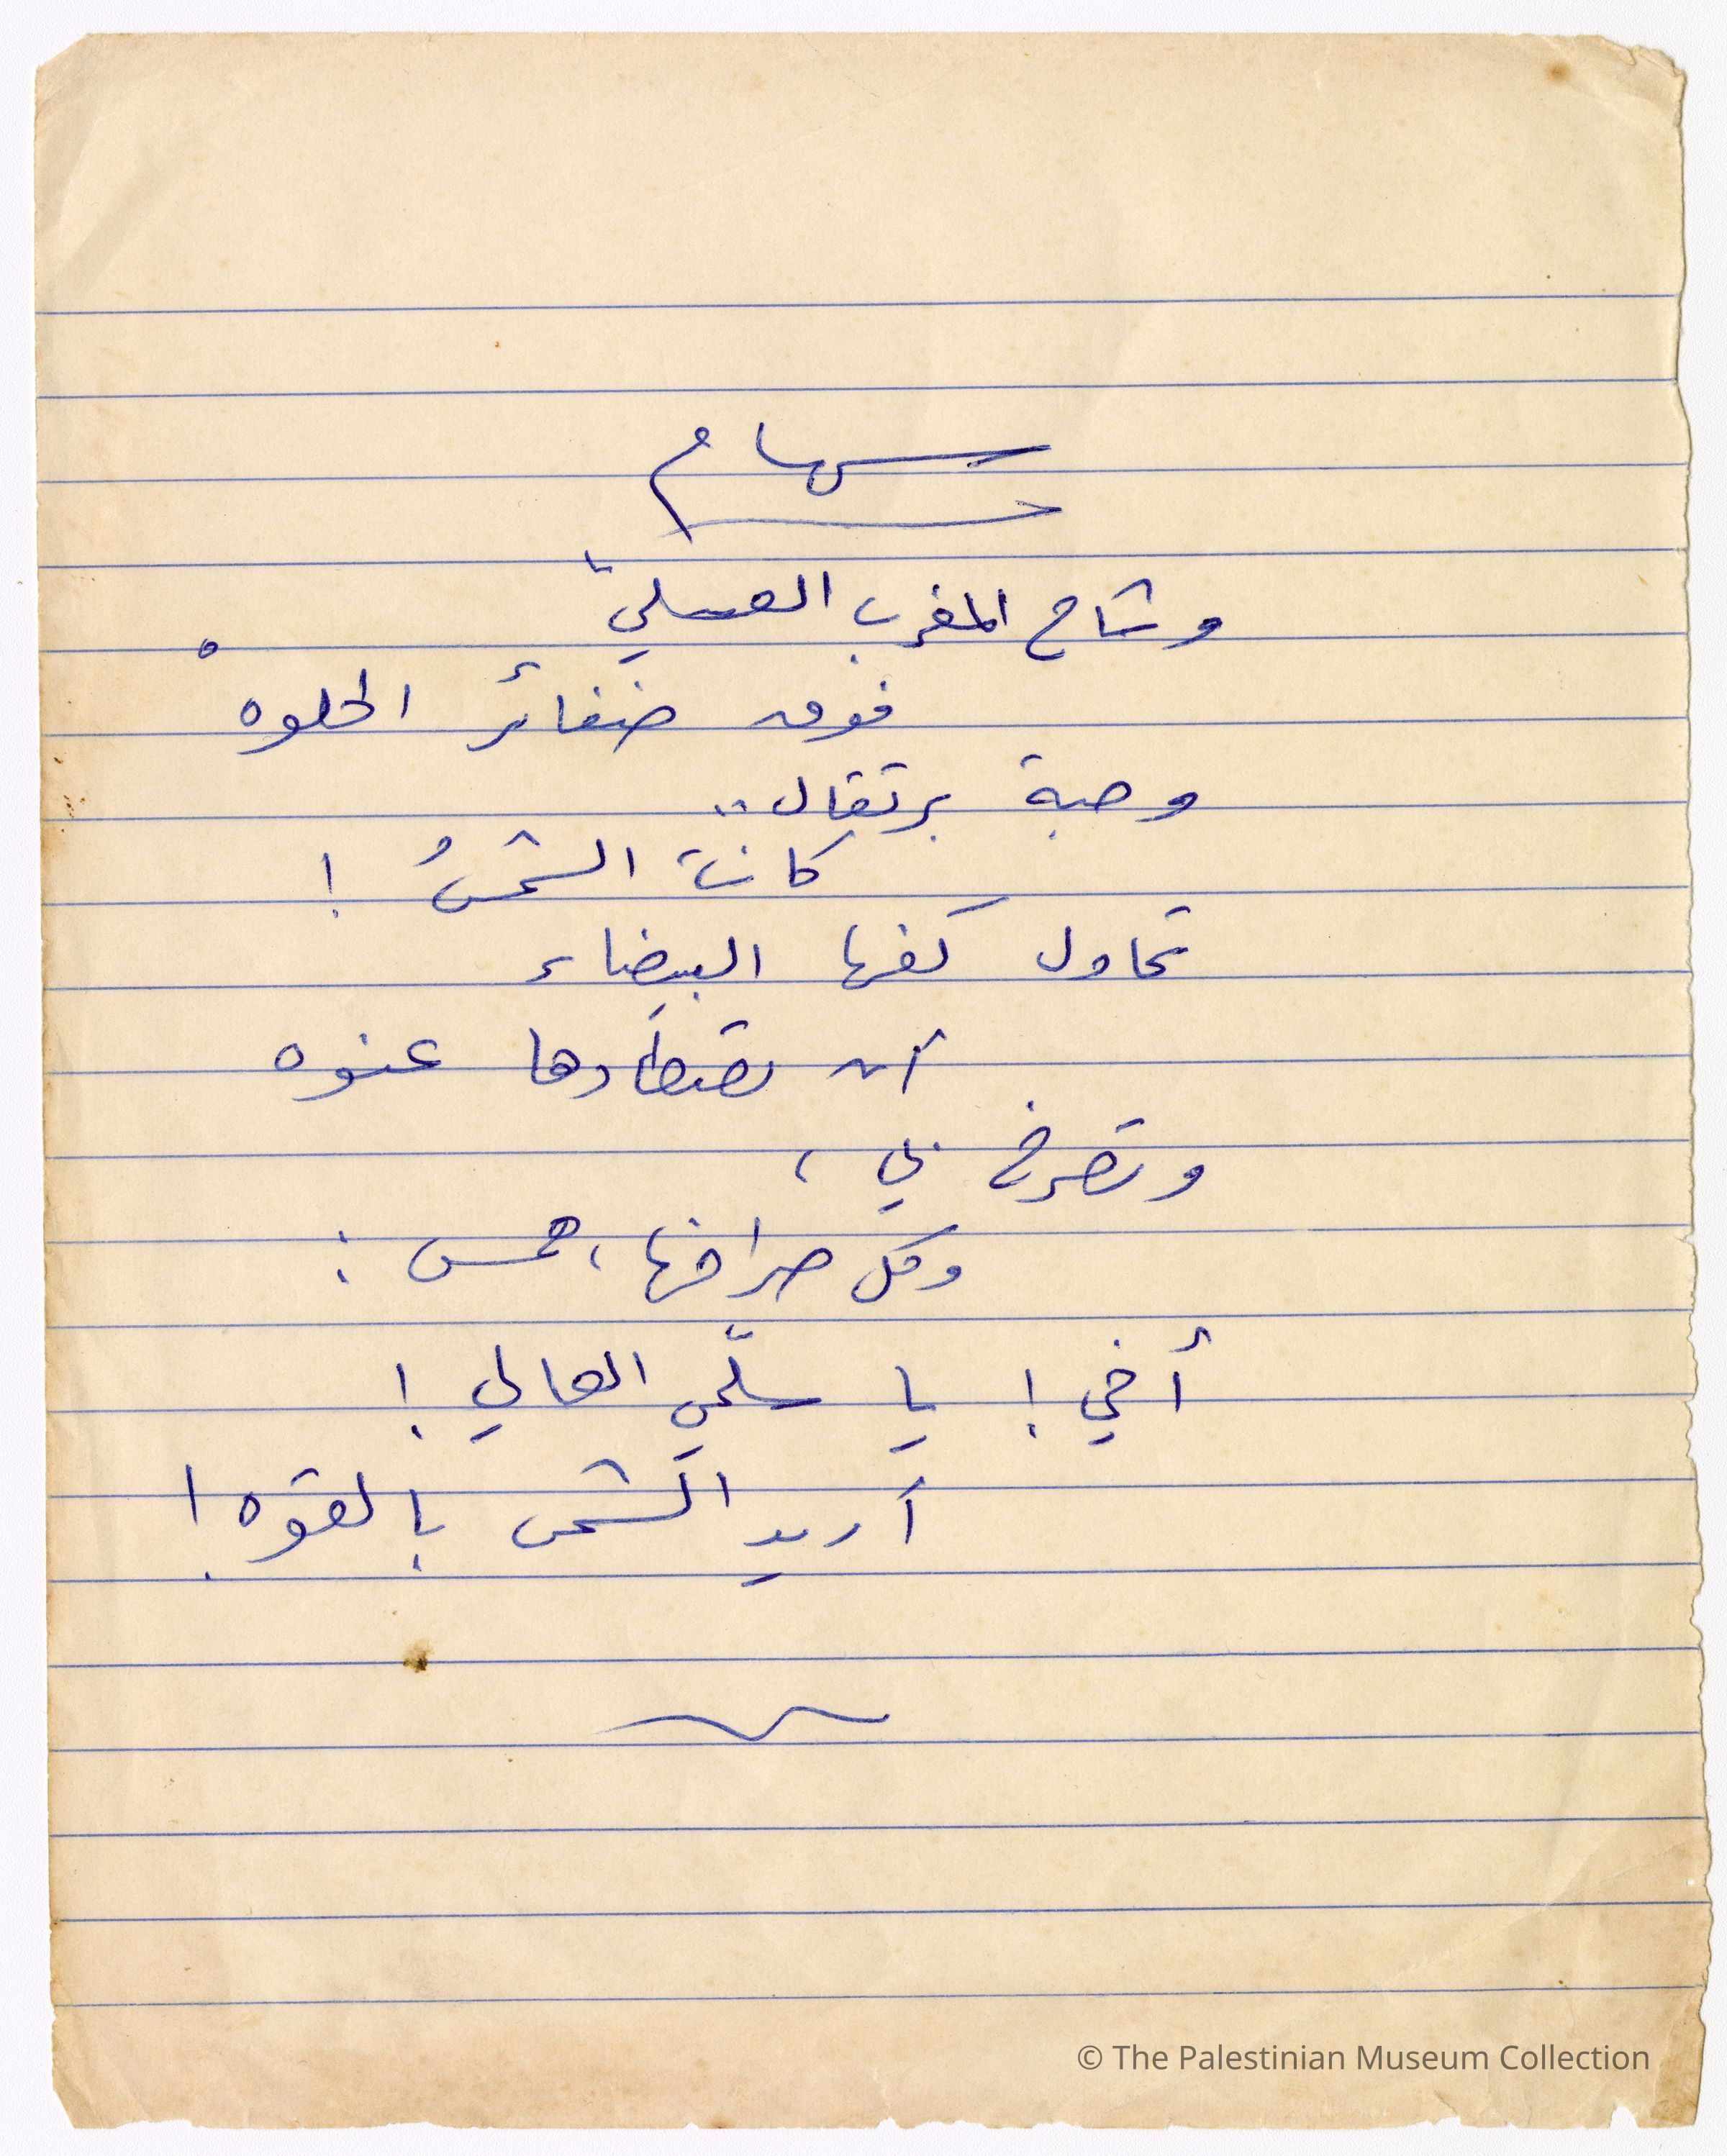 سهام
وشاح المغرب العسليّ
فوق ضفائر الحلوهْ
وحبة برتقال..
كانت الشمسُ !
تحاول كفها البيضاء
أن تصطادها عنوه
وتصرخ بي ،
وكل صراخها ، همس :
أخي ! يا سلّمي العالي !
أريد الشمس بالقوه !
© The Palestinian Museum Collection